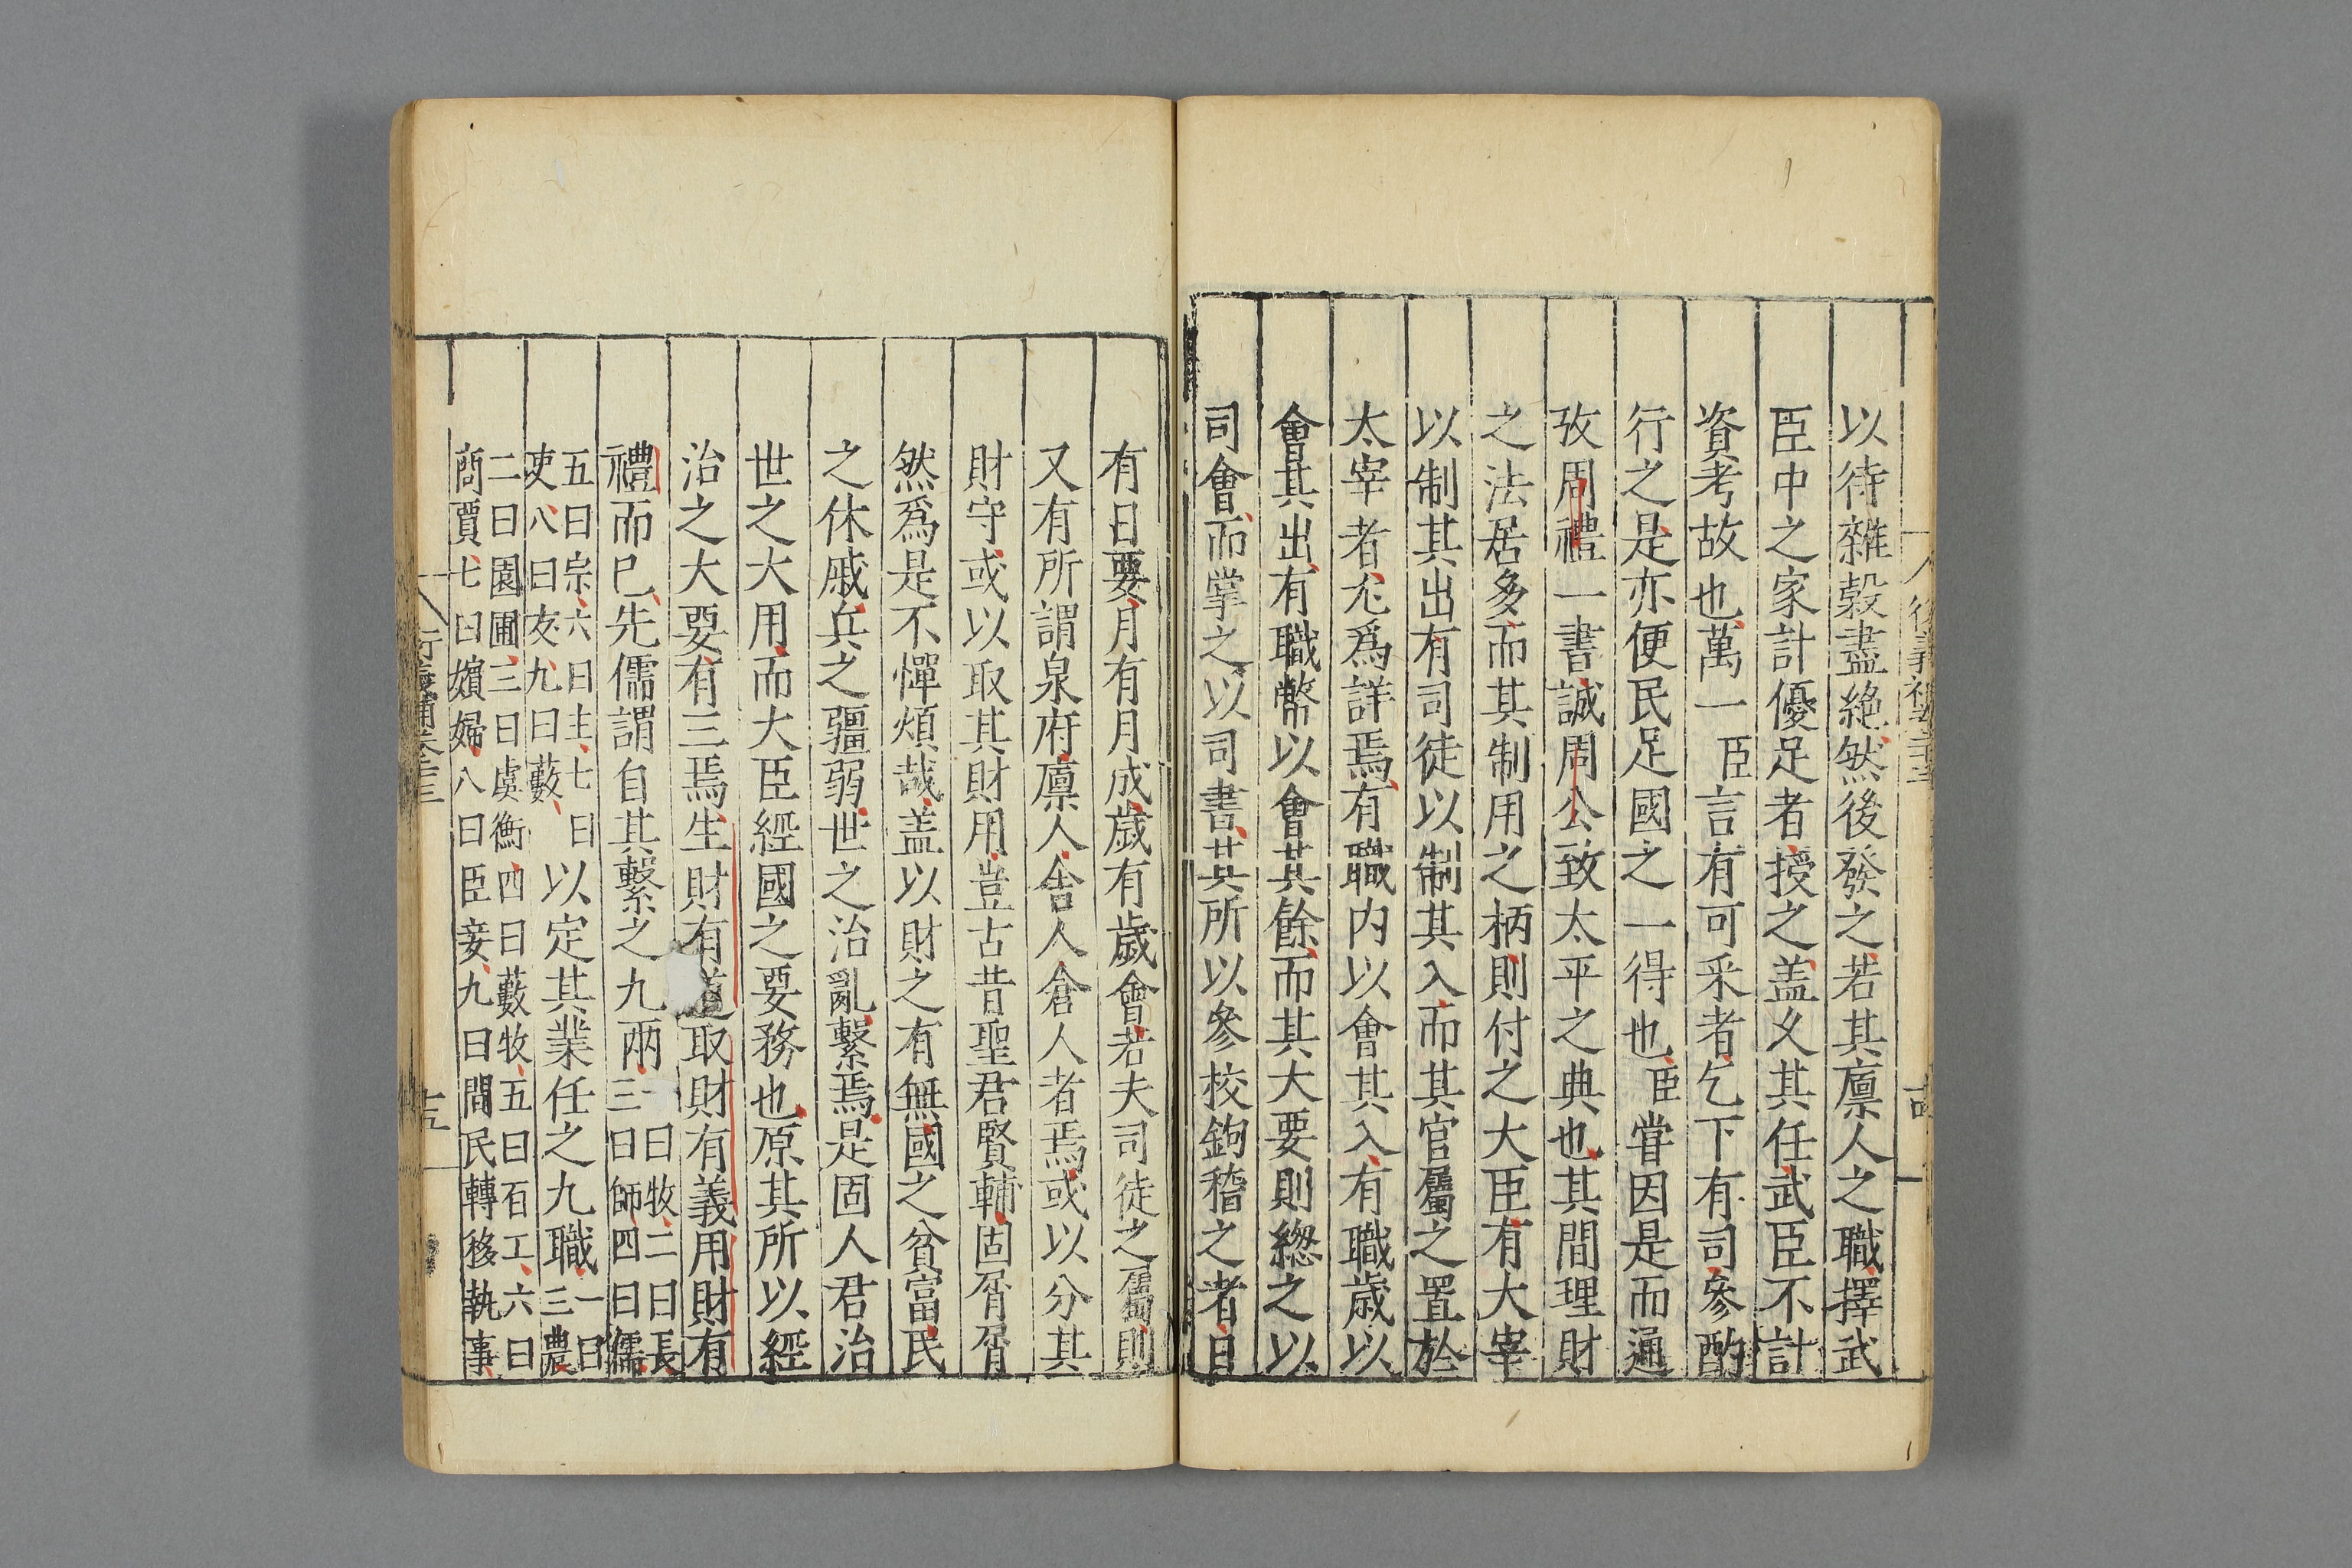 以待雜穀盡絶然後發之若其廪人之職擇武
臣中之家計優足者授之盖义其任武臣不計
資考故也萬一臣言有可采者乞下有司參酌
行之是亦便民足國之一得也臣嘗因是而通
攷周禮一書誠周公致太平之典也其間理財
之法居多而其制用之柄則付之大臣有大宰
以制其出有司徒以制其入而其官屬之置於
太宰者尤爲詳焉有職内以會其入有職歳以
會其出有職幣以會其餘而其大要則緫之以
司會而掌之以司書其所以參校鉤稽之者日
有日要月有月成歲有歲會若夫司徒之屬則
又有所謂泉府廪人舎人倉人者焉或以分其
財守或以取其財用豈古昔聖君賢輔固屑屑
然爲是不憚煩哉盖以財之有無國之貧富民
之休戚兵之疆弱世之治亂繫焉是固人君治
世之大用而大臣經國之要務也原其所以經
治之大要有三焉生財有道取財有義用財有
禮而巳先儒謂自其繫之九兩一曰牧二曰長
三曰師四曰儒
五曰宗六曰主七曰
吏八曰友九曰藪以定其業任之九職一曰
三農
二曰園圃三曰虞衡四曰藪牧五曰百工六曰
商賈七曰嬪婦八曰臣妾九曰間民轉移執事
衍義補卷二十三
十五